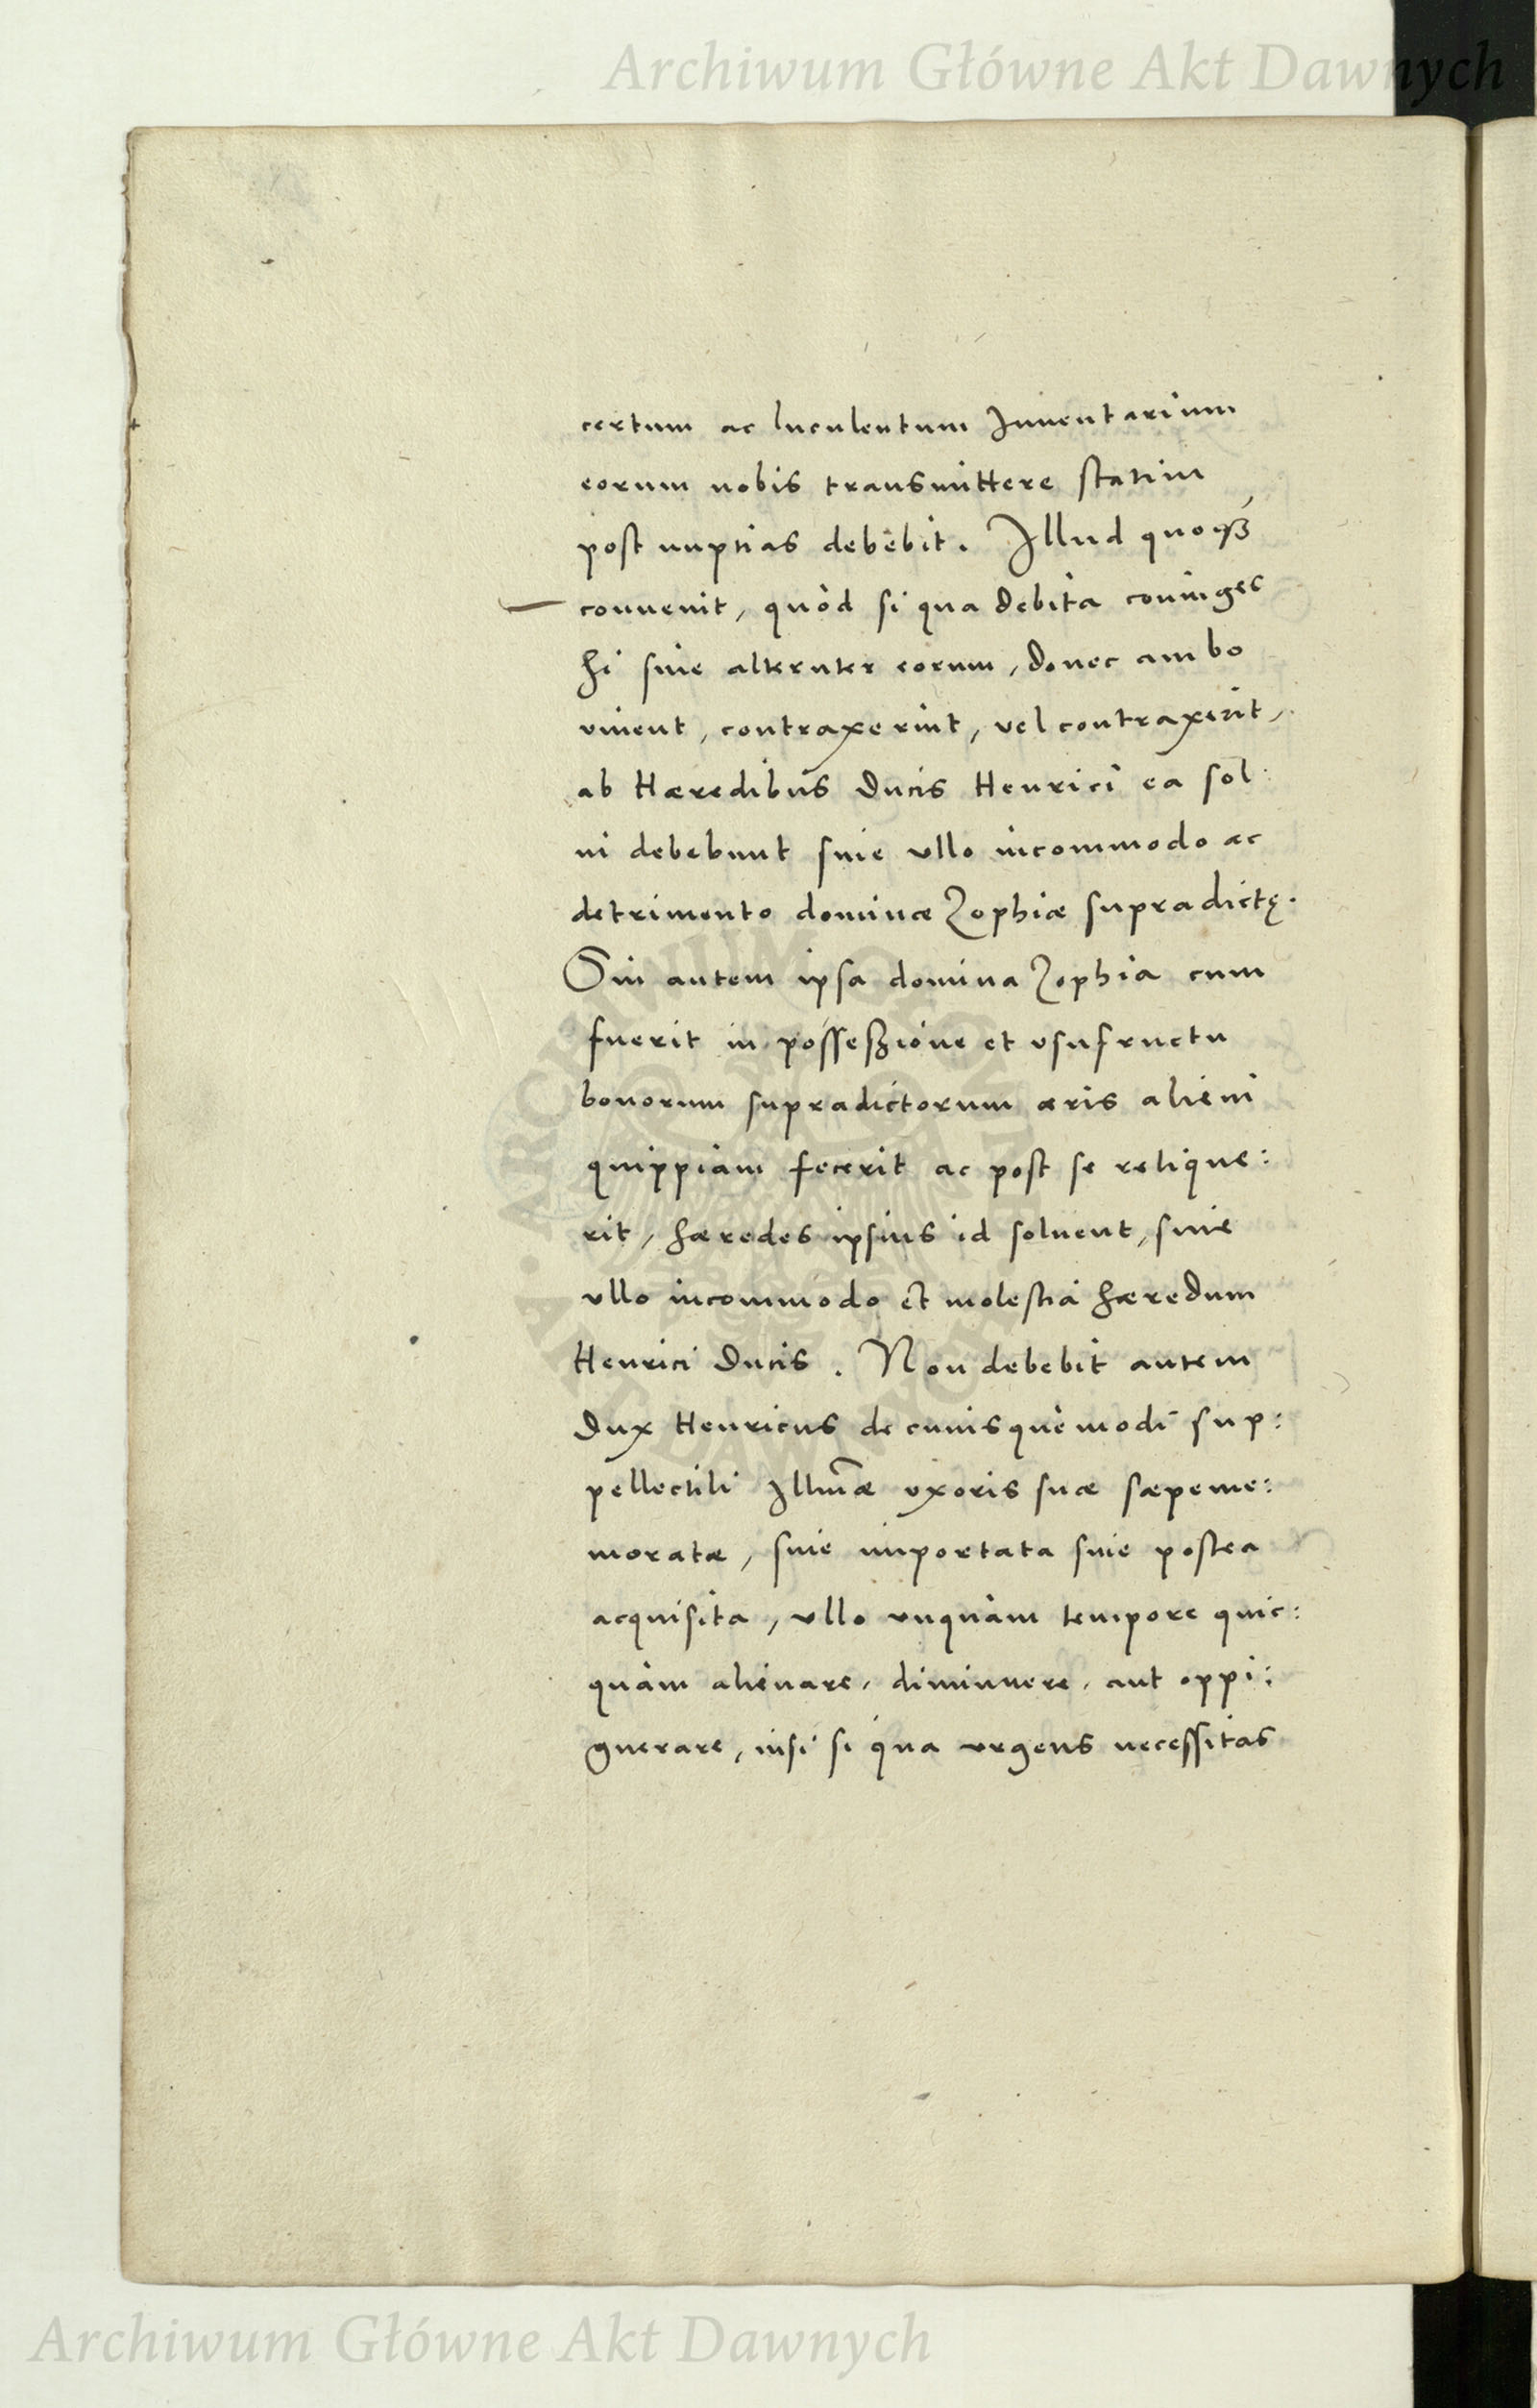 Archiwum Główne Akt Dawnych
certum ac luculentum Inuentarium
eorum nobis transmittere statim
post nuptias debebit. Illud quoqꝫ
conuenit, quòd si qua debita coniuges
hi siue alteruter eorum, donec ambo
viuent, contraxerint, vel contraxerit,
ab Hæredibus Ducis Henrici ea sol:
ui debebunt sine vllo incommodo ac
detrimento dominæ Zophiæ supradictę.
Sin autem ipsa domina Zophia cum
fuerit in possessione et vsufructu
bonorum supradictorum æris alieni
quippiam fecerit ac post se relique:
rit, hæredes ipsius id soluent, sine
vllo incommodo et molestia hæredum
Henrici Ducis. Non debebit autem
Dux Henricus de cuiusquemodi sup:
pellectili Illmæ vxoris suæ sæpeme:
moratæ, siue importata siue postea
acquisita, vllo vnquàm tempore quic:
quàm alienare, diminuere, aut oppi:
gnerare, nisi si qua vrgens necessitas
Archiwum Główne Akt Dawnych